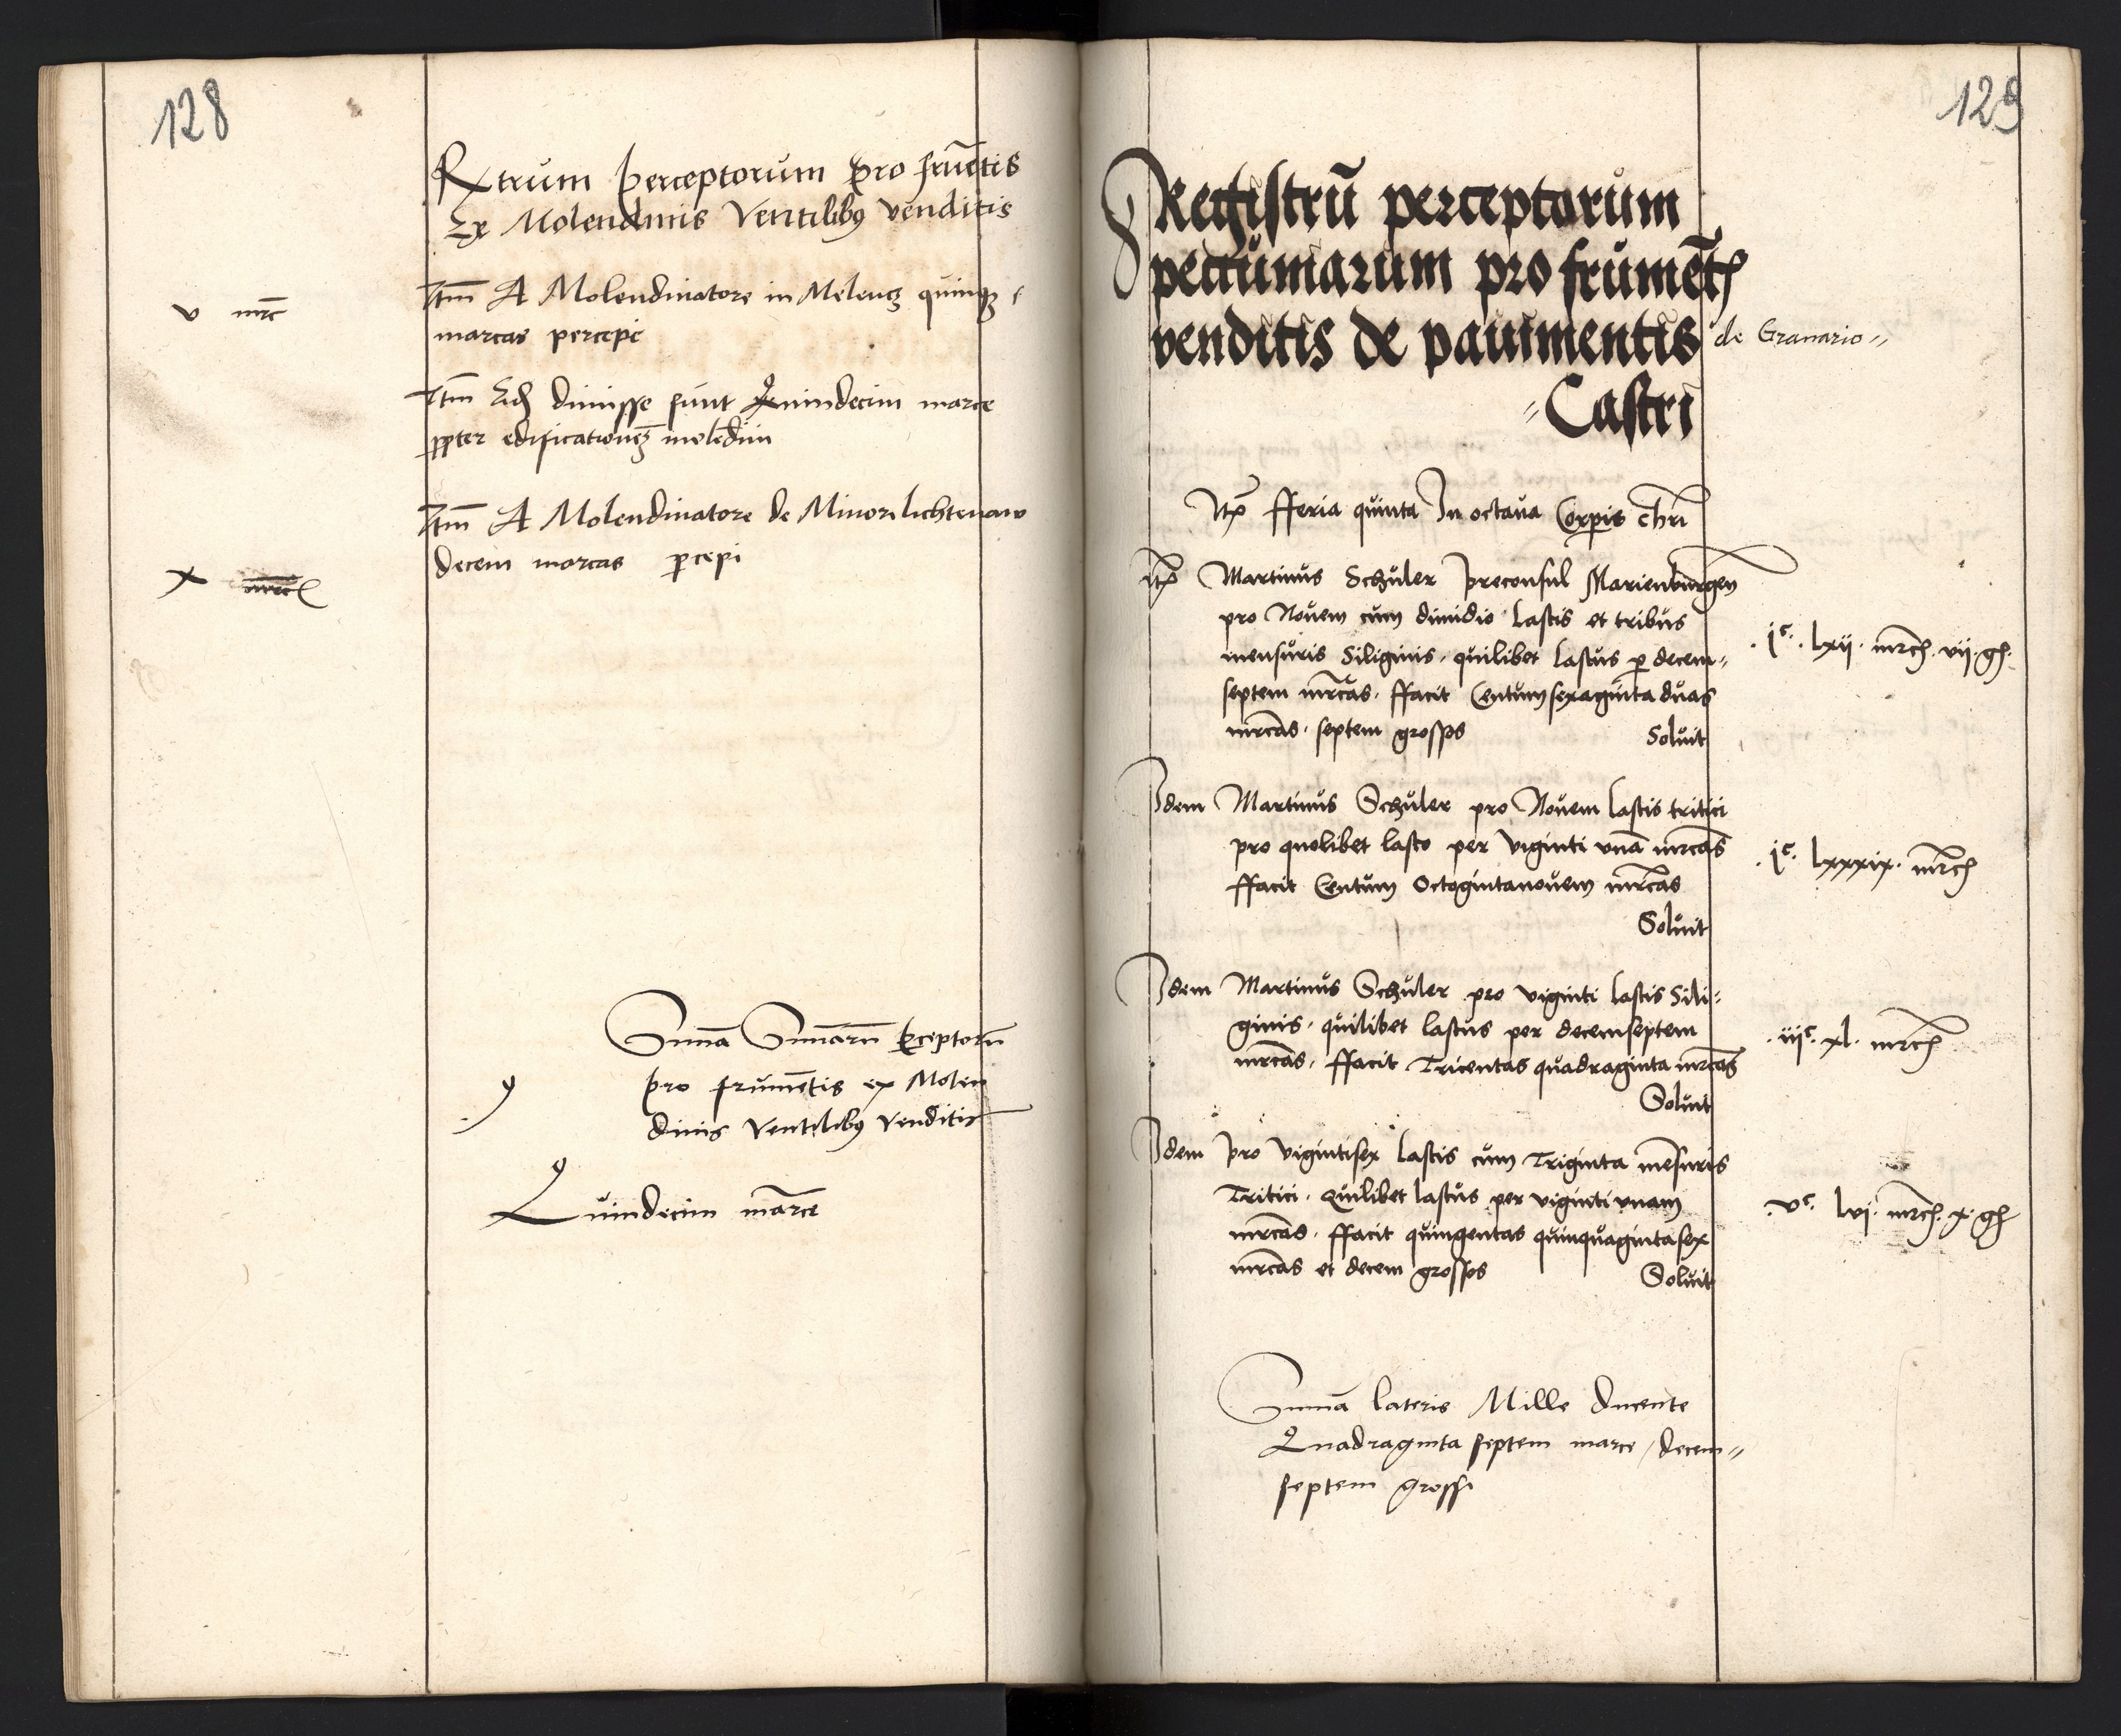 128
Rxtrum perceptorum pro frumētis
Ex Molendinis Ventilibꝯ venditis
v mrc̄
Itm̄ A Molendinatore in Melencz quinqꝫ
marcas percepi
Itm̄ dimisse sunt Quindecim marce
ꝓpter edificationeꝫ molēdini
Itm̄ A Molendinatore de Minori lichtenaw
x
decem marcas ꝑcepi
Sum̄a Sum̄arū ꝑceptorū
pro frumētis ex Molen
dinis Ventilibꝯ Venditis
Quindecim marce
129
Registrū perceptorum
peccuniarum pro frumēt
venditis de pauimentis de Granario〃
〃Castri
Itꝫ fferia quinta In octaua Corpis chri
Itꝫ Martinus Schuler preconsul Marienburgen
pro Nouem cum dimidio lastis et tribus
mensuris Siliginis. quilibet lastus ꝑ decem〃
.jᶜ. lxij. mrcꝭ. vij. gꝭ.
septem mrcas. ffacit Centum sexaginta duas
mrcas. septem grossos Soluit
Idem Martinus Schuler pro Nouem lastis tritici
pro quolibet lasto per viginti vnā mrcas
.jᶜ. lxxxix. mrcꝭ
ffacit Centum Octogintanouem mrcas
Soluit
Idem Martinus Schuler pro viginti lastis Sili〃
ginis. quilibet lastus per decemseptem
.iijᶜ. xl. mrcꝭ
mrcas. ffacit Tricentas quadraginta mrcas
Soluit
Idem pro vigintisex lastis cum Triginta mēsuris
Tritici. Quilibet lastus per viginti vnam
.vᶜ. lvj. mrcꝭ. x. gꝭ
mrcas. ffacit quingentas quinquagintasex
mrcas et decem grossos Soluit
Sum̄a lateris Mille Ducente
Quadraginta septem marce / decem〃
septem grossi